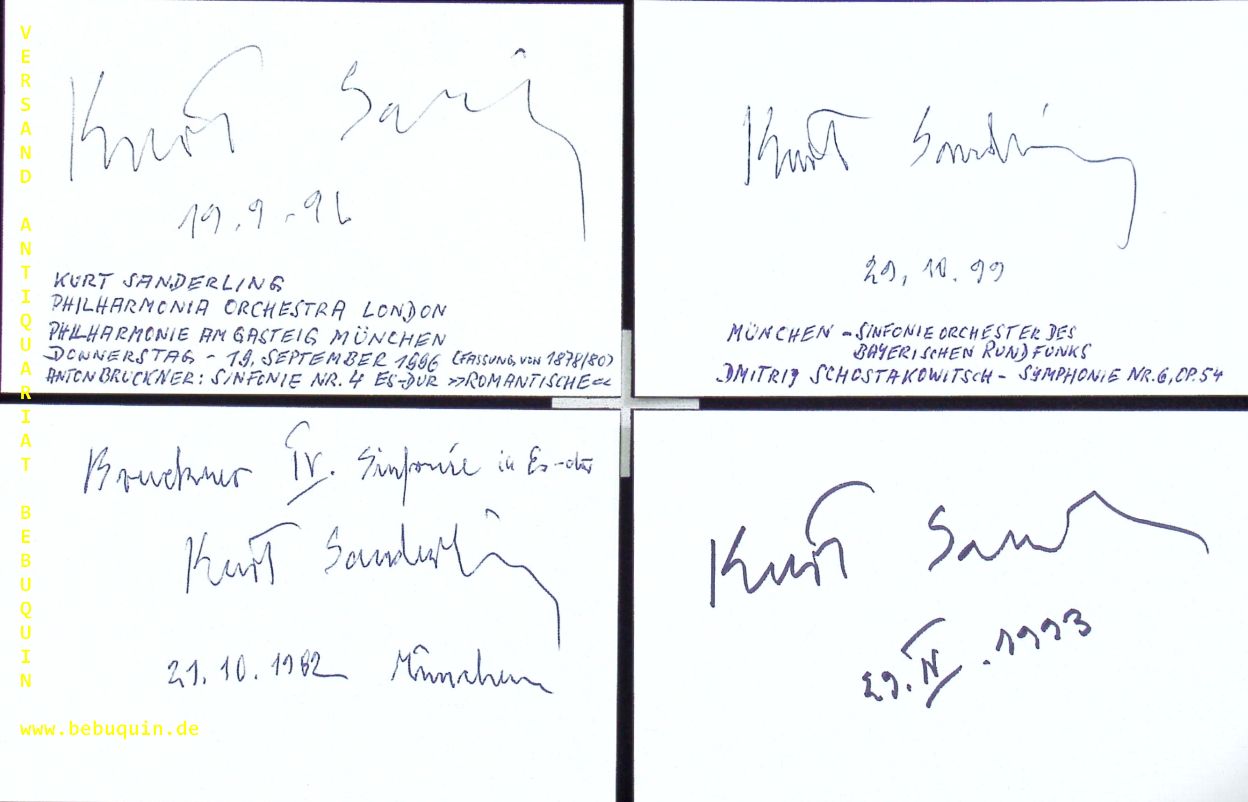 Kurt Sanderling
19.9.-96
KURT SANDERLING
PHILHARMONIA ORCHESTRA LONDON
PHILHARMONIE AM GASTEIG MÜNCHEN
DONNERSTAG - 19. SEPTEMBER 1996 (FASSUNG VON 1878/80)
ANTON BRUCKNER: SINFONIE NR. 4 ES-DUR >>ROMANTISCHE<<
Kurt Sanderling
29.10.99
MÜNCHEN - SINFONIEORCHESTER DES
BAYERISCHEN RUNDFUNKS
DMITRIJ SCHOSTAKOWITSCH - SYMPHONIE NR.6, OP.54
Bruckner IV. Sinfonie in Es-dur
Kurt Sanderling
21.10.1982 München
Kurt Sanderling
29.IV.1993
VERSAND ANTIQUARIAT BEBUQUIN
www.bebuquin.de